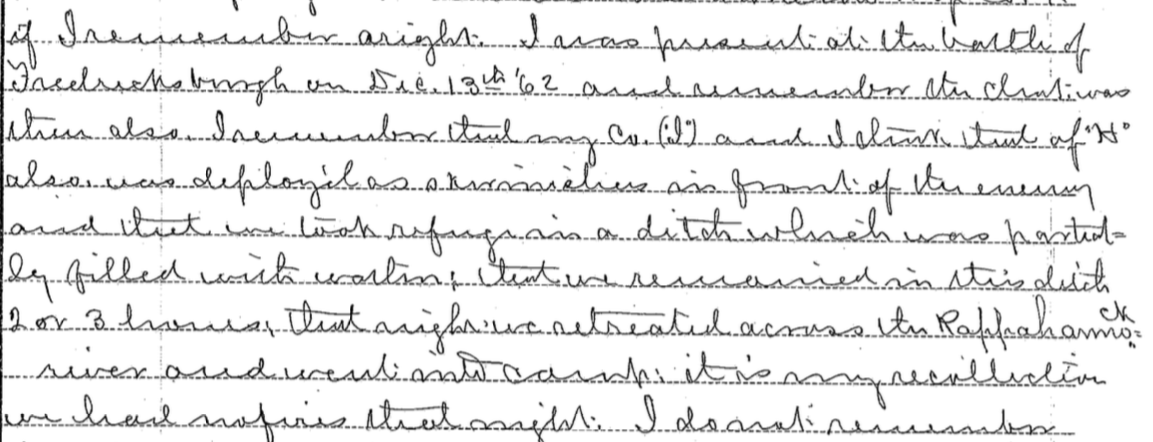 if I remember aright. I was present at the battle of
Fredricksburgh on Dec. 13th '62 and remember the clmt. was
there also. I remember that my Co. ("I") and I think that of "H"
also. was deploy'd as skirmishers in front of the enemy
and that we took refuge in a ditch which was partial=
ly filled with water; that we remained in this ditch
2 or 3 hours; that night we retreated across the Rappahannock
river and went into camp; it is my recollection
we had no fires that night. I do not remember